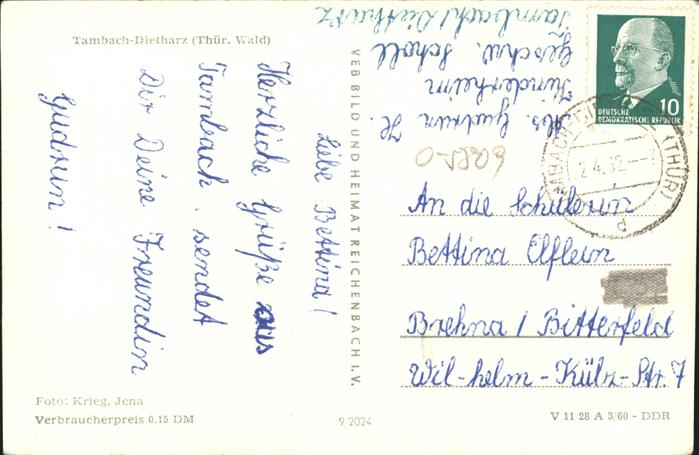 Tambach-Dietharz (Thür. Wald)
Liebe Bettina!
Herzliche Grüße aus
Tambach sendet
Dir Deine Freundin
Gudrun!
Foto: Krieg, Jena
Verbraucherpreis 0,15 DM
VEB BILD UND HEIMAT REICHENBACH I. V.
9/2024
V 11 28 A 3/60 - DDR
Abs. Gudrun H.
Kinderheim
Geschw. Scholl
Tambach/Dietharz
DEUTSCHE
DEMOKRATISCHE REPUBLIK
10
(THÜR)
2.4.62
An die Schülerin
Bettina Elflein
Brehna / Bitterfeld
Wil-helm-Külz-Str. 7